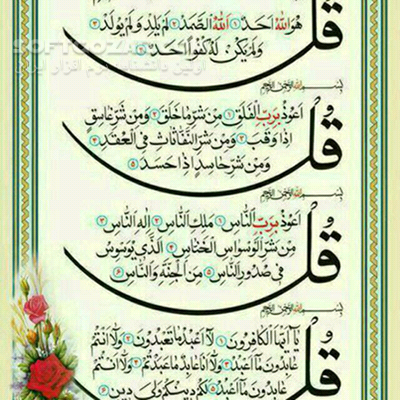 قُلْ هُوَ اللهُ اَحَدٌ ۱ اَللهُ الصَّمَدُ ۲ لَمْ يَلِدْ وَلَمْ يُولَدْ ۳
وَلَمْ يَكُنْ لَهُ كُفُوًا اَحَدٌ ۴
SOFTGOZAR
اولین دانشنامه نرم افزار ایران
بِسْمِ اللهِ الرَّحْمنِ الرَّحِيمِ
قُلْ اَعُوذُ بِرَبِّ الْفَلَقِ ۱ مِنْ شَرِّ مَا خَلَقَ ۲ وَمِنْ شَرِّ غَاسِقٍ
اِذَا وَقَبَ ۳ وَمِنْ شَرِّ النَّفَّاثَاتِ فِي الْعُقَدِ ۴
وَمِنْ شَرِّ حَاسِدٍ اِذَا حَسَدَ ۵
بِسْمِ اللهِ الرَّحْمنِ الرَّحِيمِ
قُلْ اَعُوذُ بِرَبِّ النَّاسِ ۱ مَلِكِ النَّاسِ ۲ اِلهِ النَّاسِ ۳
مِنْ شَرِّ الْوَسْوَاسِ الْخَنَّاسِ ۴ اَلَّذِي يُوَسْوِسُ
فِي صُدُورِ النَّاسِ ۵ مِنَ الْجِنَّةِ وَالنَّاسِ ۶
بِسْمِ اللهِ الرَّحْمنِ الرَّحِيمِ
قُلْ يَا اَيُّهَا الْكَافِرُونَ ۱ لَا اَعْبُدُ مَا تَعْبُدُونَ ۲ وَلَا اَنْتُمْ
عَابِدُونَ مَا اَعْبُدُ ۳ وَلَا اَنَا عَابِدٌ مَا عَبَدْتُمْ ۴ وَلَا اَنْتُمْ
عَابِدُونَ مَا اَعْبُدُ ۵ لَكُمْ دِينُكُمْ وَلِيَ دِينِ ۶